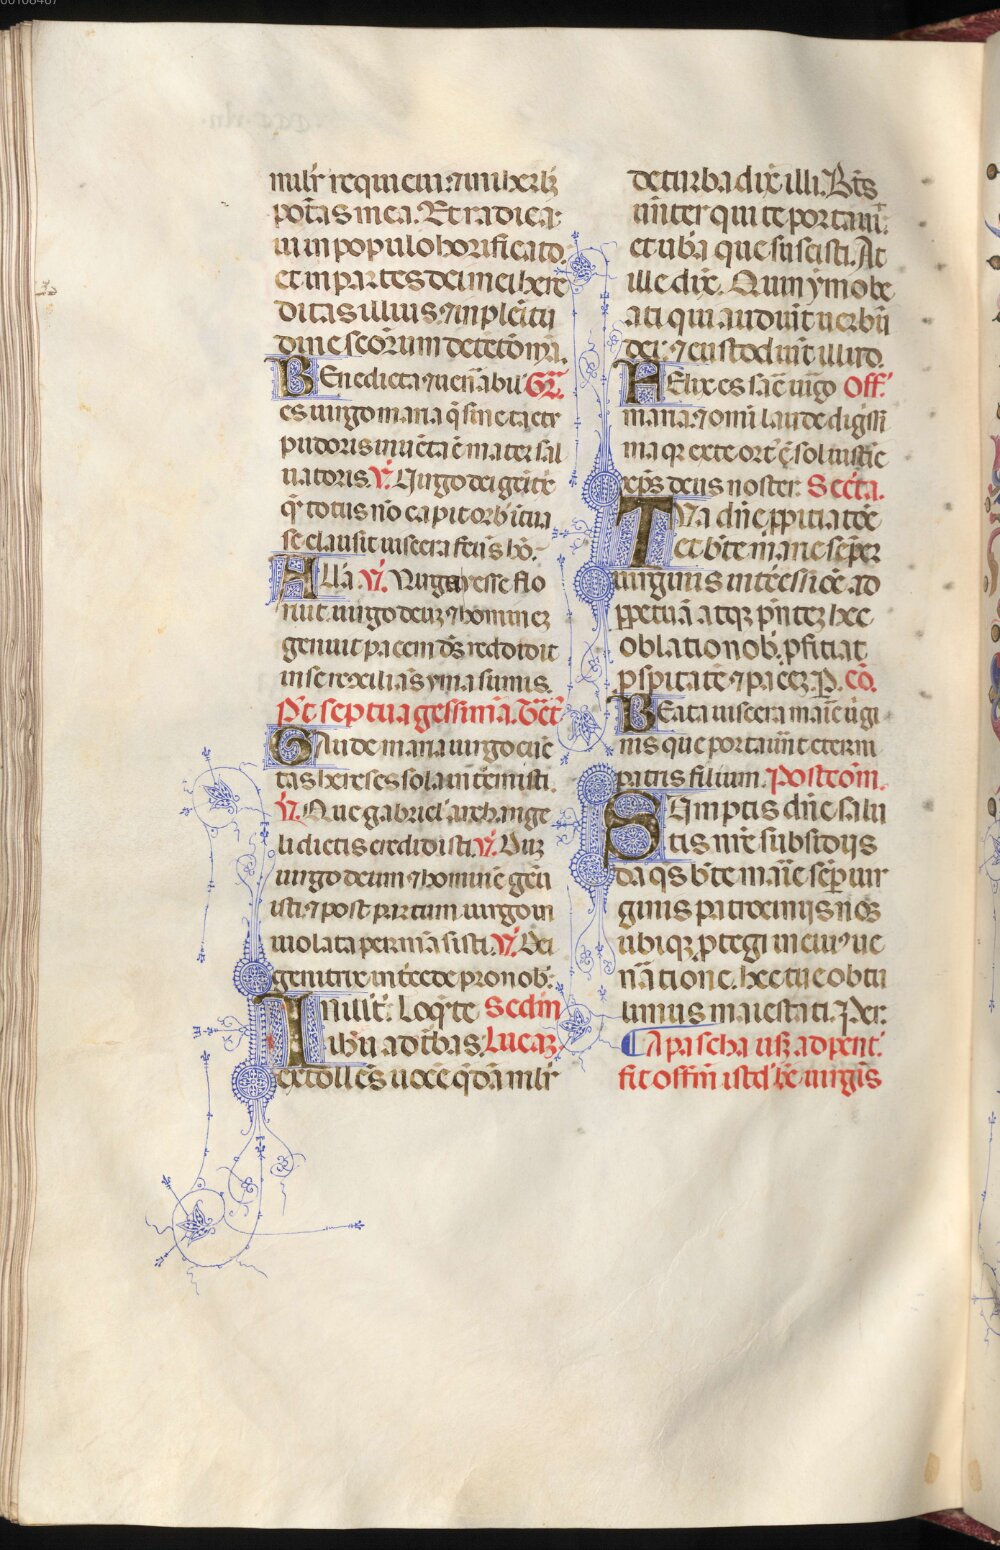 militer requieui ⁊ in iherl̄z
potas mea. Et radica
ui in populo honorificato.
et in partes dei mei here
ditas illius ⁊ in plēitu
dine scōrum detētō mea.
Benedicta ⁊ uenabil' Gr̄.
es uirgo maria q̄ sine tactu
pudoris inuēta ē mater sal
uatoris. V̄. Uirgo dei genit̄x
q̄ totus nō capit orbis ī tua
se clausit uiscera factus hō.
Alla V̄. Uirga yesse flo
ruit uirgo deuz ⁊ hominez
genuit pacem d̄s reddidit
in se reconcilians yma sumis.
Pt̄ septuagessima. Tc̄t
Gaude maria uirgo cūc
tas hereses sola intemisti.
V̄. Que gabrieli archange
li dictis credidisti. V̄. Duz
uirgo deum ⁊ hominē genu
isti ⁊ post partum uirgo in
uiolata permāsisti. V̄. Dei
genitrix intcede pro nob.
In illt̄. Loq̄te Secdm
ihū ad tbas. Lucaz
extollēs uoce q̄dā mlr
de turba dix̄ illi. Bt̄s
uenter qui te portauit
et ubā que suscisti. At
ille dix̄. Quinymo be
ati qui audiūt uerbū
dei ⁊ custodiūt illud.
Felix es sac̄ uirgo Off̄
maria ⁊ omī laude digissi
ma qr ex te ort̄ ē sol iustic̄
xp̄s deus noster. Sec̄ta.
Tua dn̄e ppitiatōe
et bt̄e marie semper
uirginis intcessiōe ad
ppetuā atq̄ pn̄tez hec
oblatio nob pficiat
pspitatē ⁊ pacez. P. cō.
Beata uiscera marie ugi
nis que portauūt eterni
patris filium. Postcōm.
Sumptis dn̄e salu
tis nr̄e subsidijs
da q̄s bt̄e marie semp uir
ginis patrocinijs nos
ubiq̄ ptegi in cuius ue
natione hec tue obtu
limus maiestati. Per.
A pascha usq̄ ad pent.
fit offm̄ istd bē uirginis